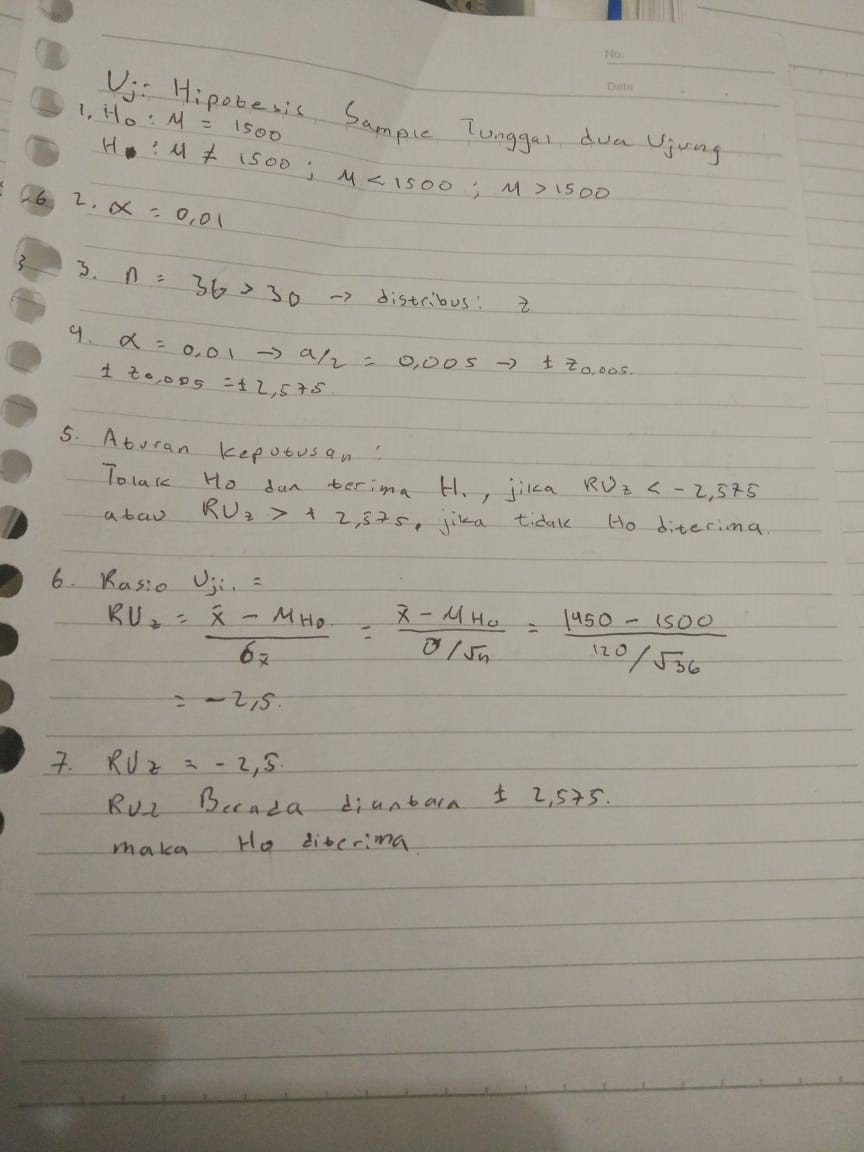 No.
Date
Uji Hipotesis Sample Tunggal dua Ujung
1. Ho : M = 1500
H : M ≠ 1500 ; M < 1500 ; M > 1500
2. α = 0,01
3. n = 36 > 30 → distribusi z
4. α = 0,01 → a/2 = 0,005 → ± z0,005.
± z0,005 = ± 2,575.
5. Aturan keputusan :
Tolak Ho dan terima H1, jika RUz < - 2,575
atau RUz > + 2,575, jika tidak Ho diterima.
6. Rasio Uji. =
RUz = x̄ - MHo / σx̄ = x̄ - MHo / σ/√n = 1450 - 1500 / 120/√36
= - 2,5.
7. RUz = - 2,5.
RUz Berada diantara ± 2,575.
maka Ho diterima.